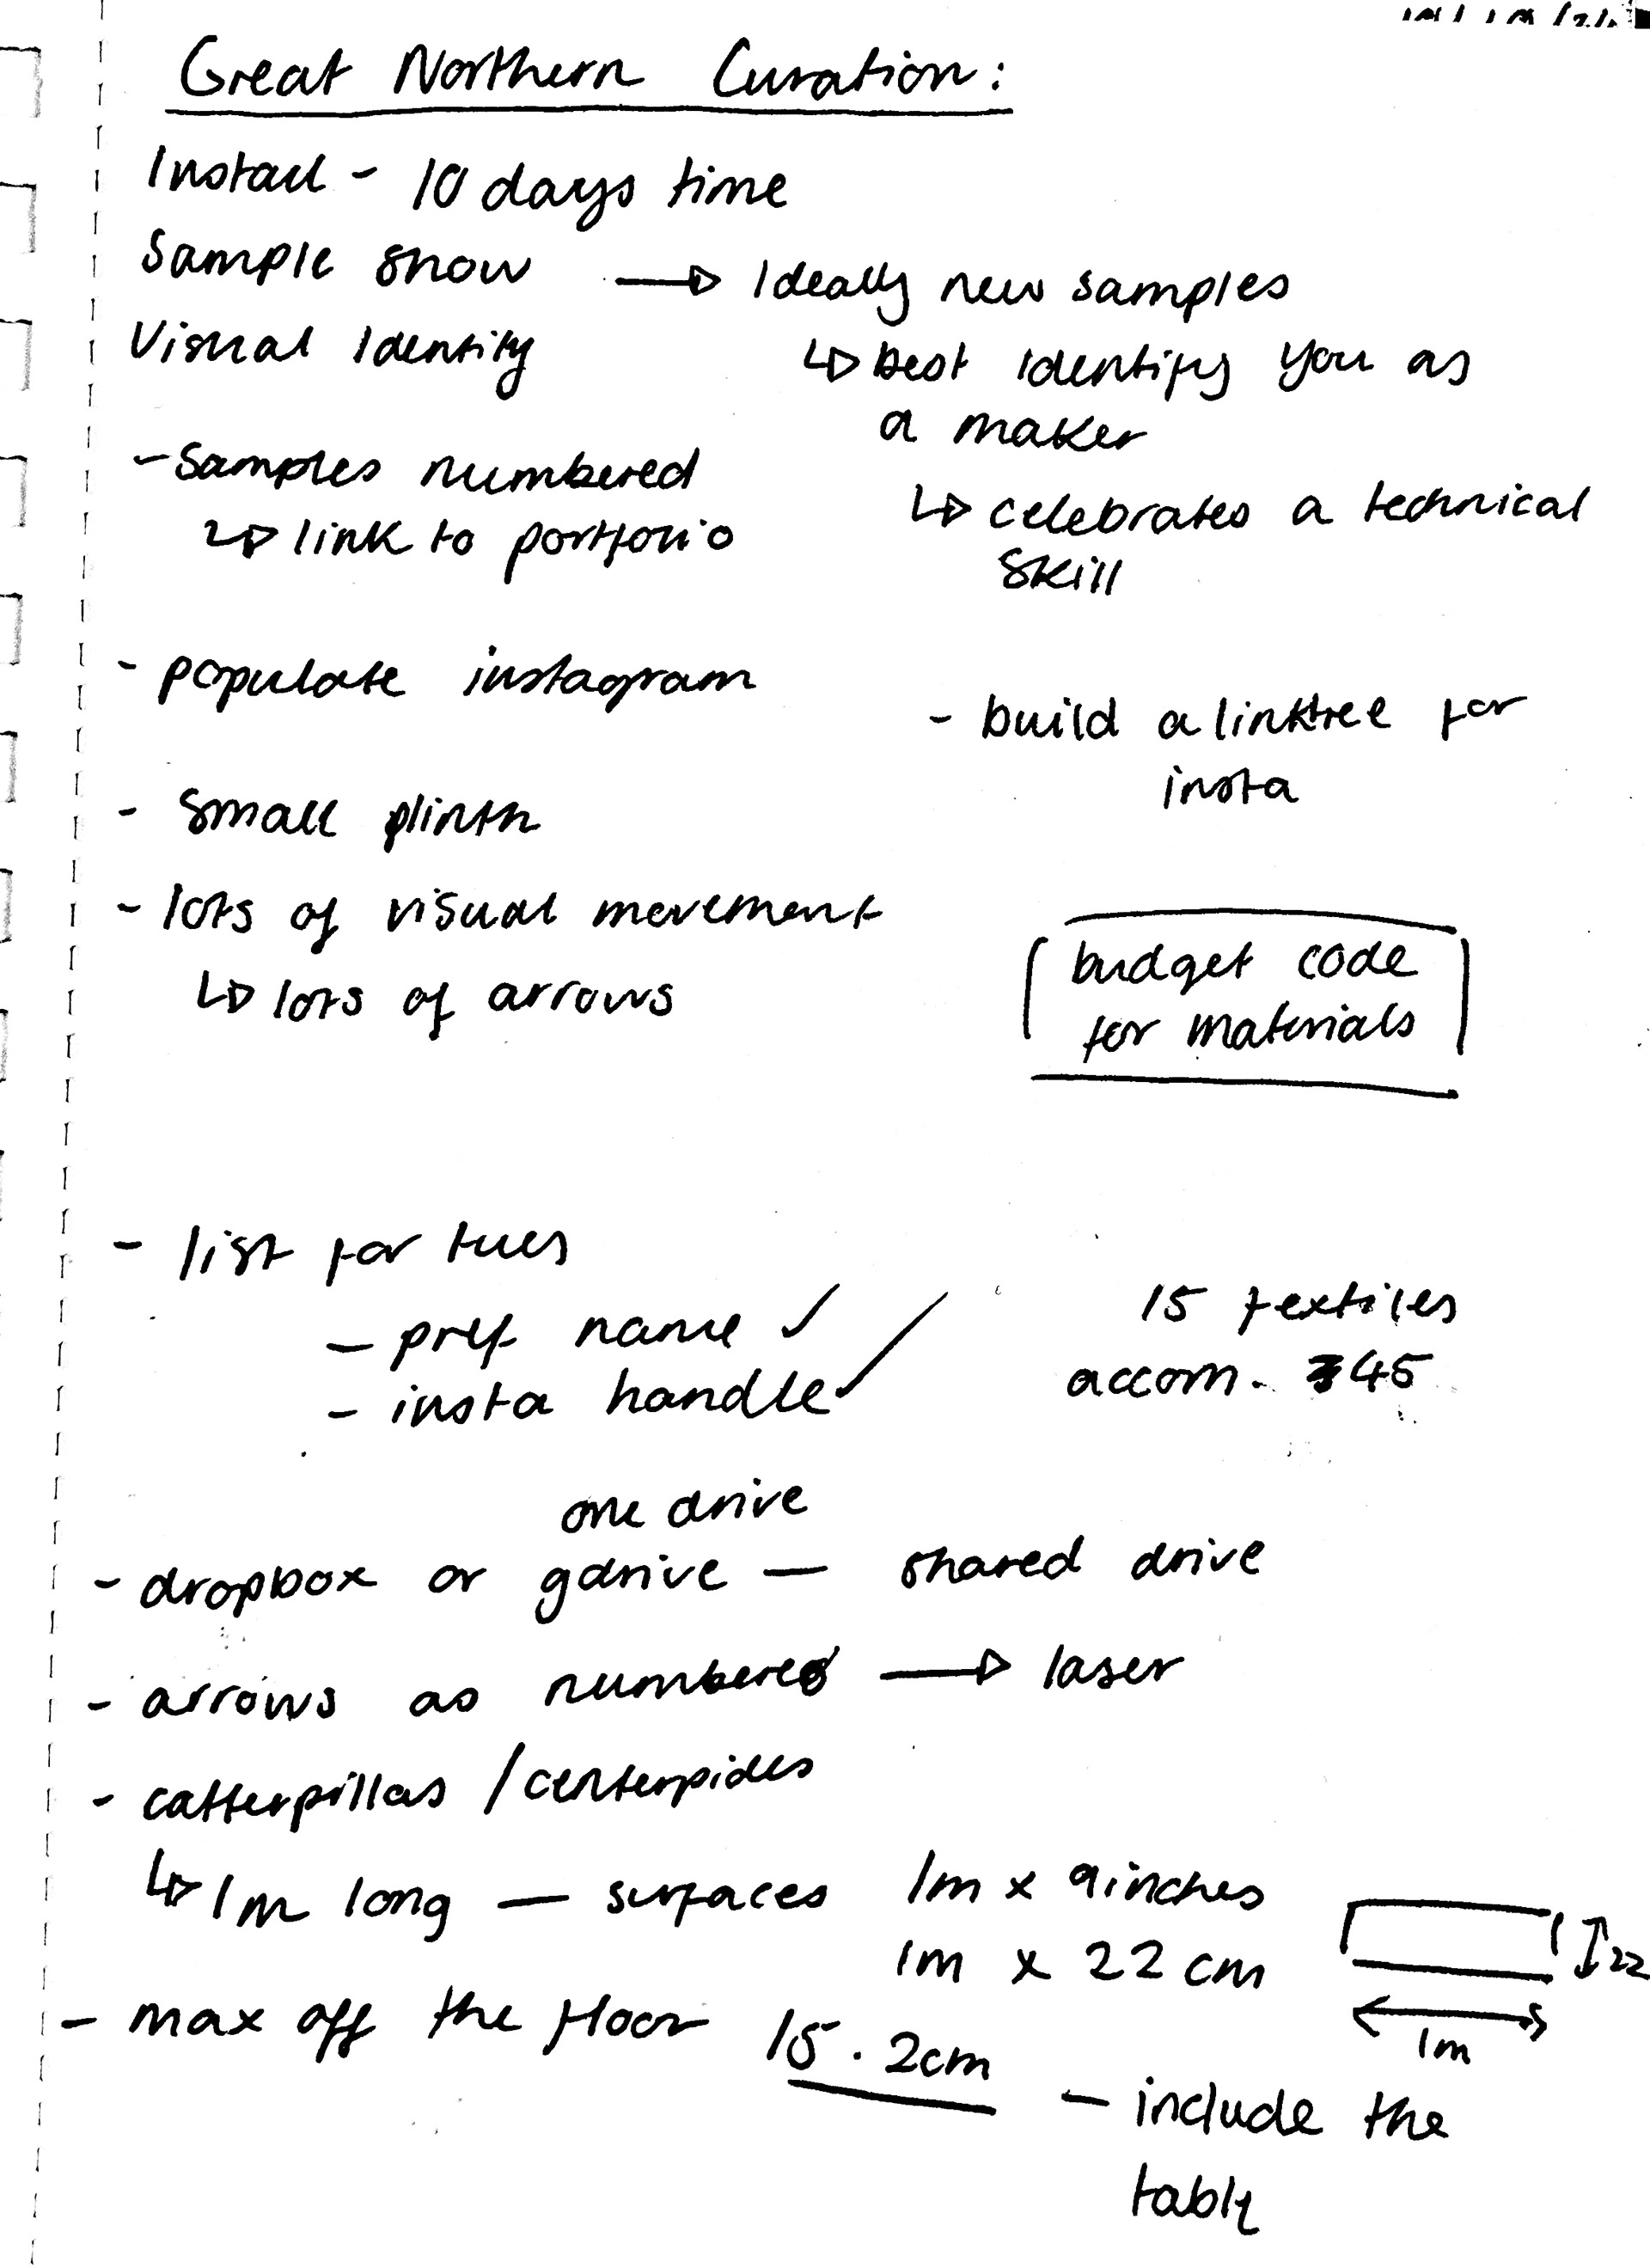 Great Northern Curation:
Install - 10 days time
Sample show → Ideally new samples
Visual Identity
↳ best identify you as
a maker
↳ celebrates a technical
skill
- samples numbered
↳ link to portfolio
- populate instagram
- build a linktree for
insta
- small plinth
- lots of visual movement
↳ lots of arrows
budget code
for materials
- list for tues
- pref name ✓
- insta handle ✓
15 textiles
accom. 45
one drive
- dropbox or gdrive — shared drive
- arrows as numbers → laser
- catterpillas / centerpides
↳ 1m long — surfaces 1m x 9inches
1m x 22 cm
22
1m
- max off the floor 15.2cm
- include the
table